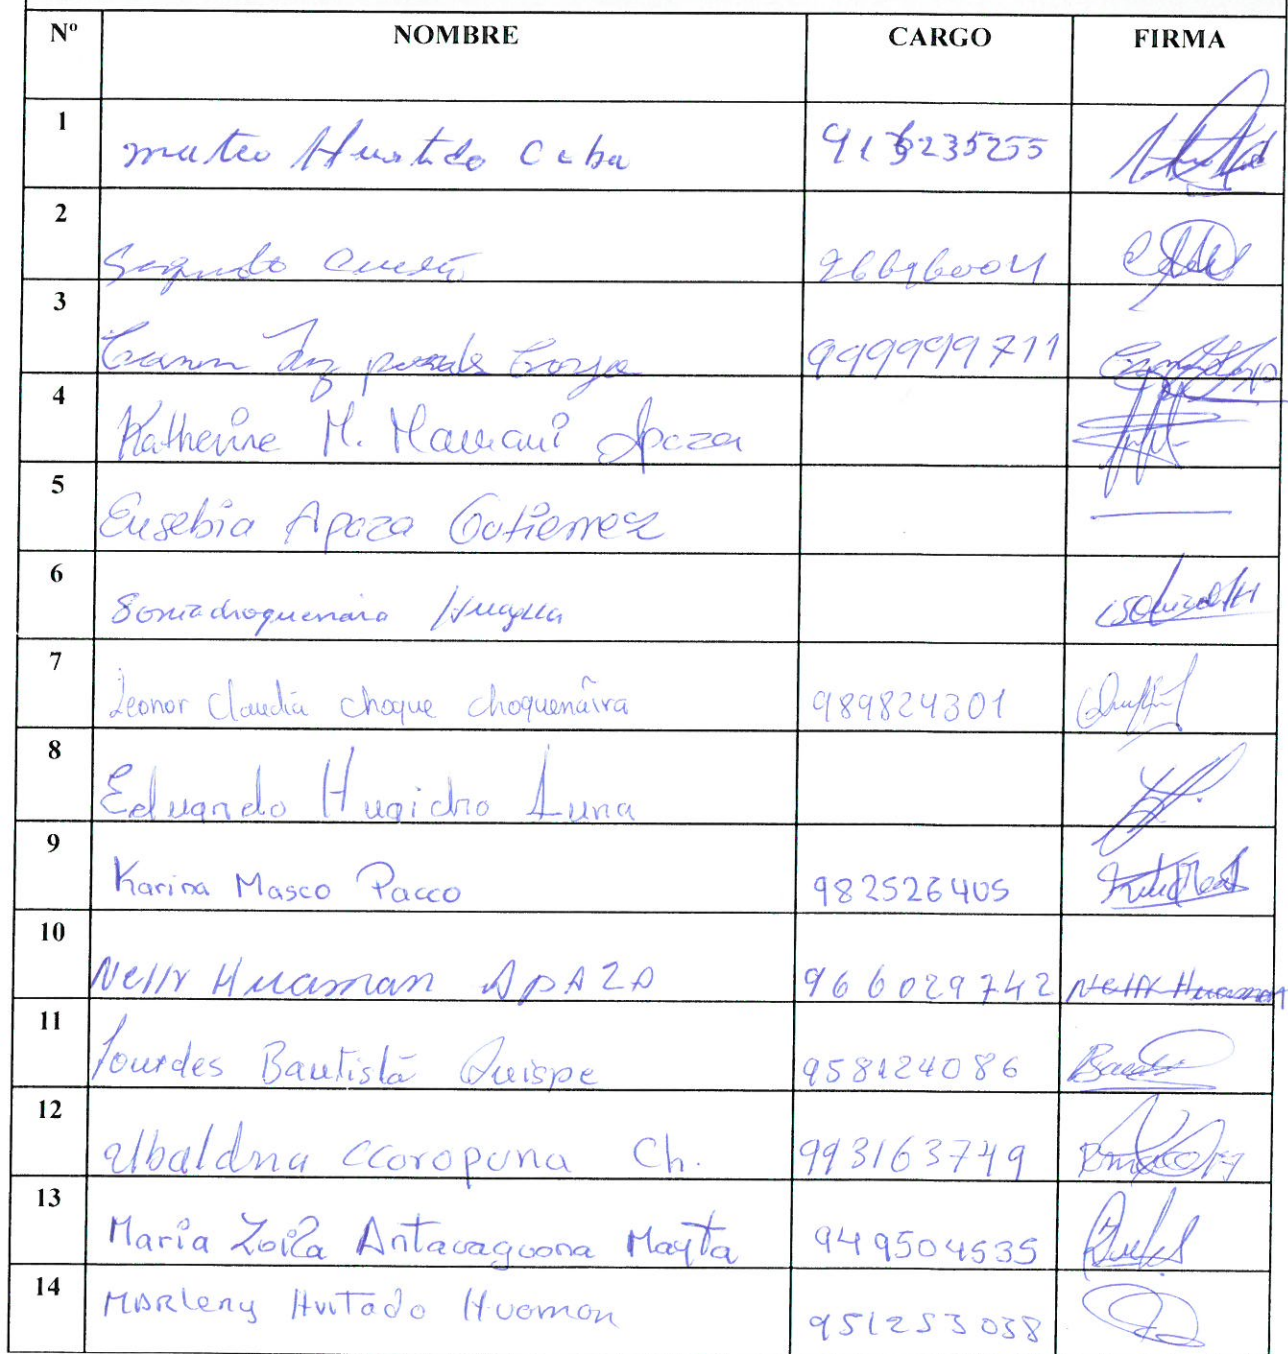 Nº NOMBRE CARGO FIRMA
1 mateo Hurtado Ccba
2 Segundo 966960004
3 999999711
4 Katherine M. Mamani Apaza
5 Eusebia Apaza Gutierrez
6 Soniachoquenaira Huaylla
7 Leonor Claudia choque choquenaira 989824301
8 Eduardo Huaichro Luna
9 Karina Masco Pacco 982526405
10 Nelly Huaman APAZA 966029742 Nelly Huaman
11 Lourdes Bautista Quispe 958124086
12 Ubaldina ccoropuna Ch. 993163749
13 Maria Zoila Antavaguona Mayta 949504535
14 MARleny HuTado Huaman 951253038